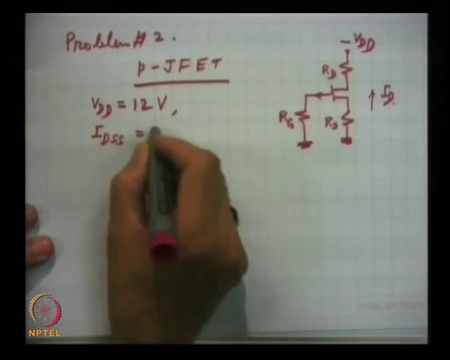 Problem # 2.
p-JFET
V_DD = 12 V,
I_DSS =
-V_DD
R_D
I_D
R_G
R_S
NPTEL